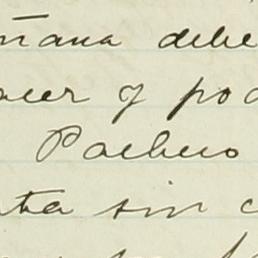 ñana debe
acer y pod
Pacheco
ta sin c